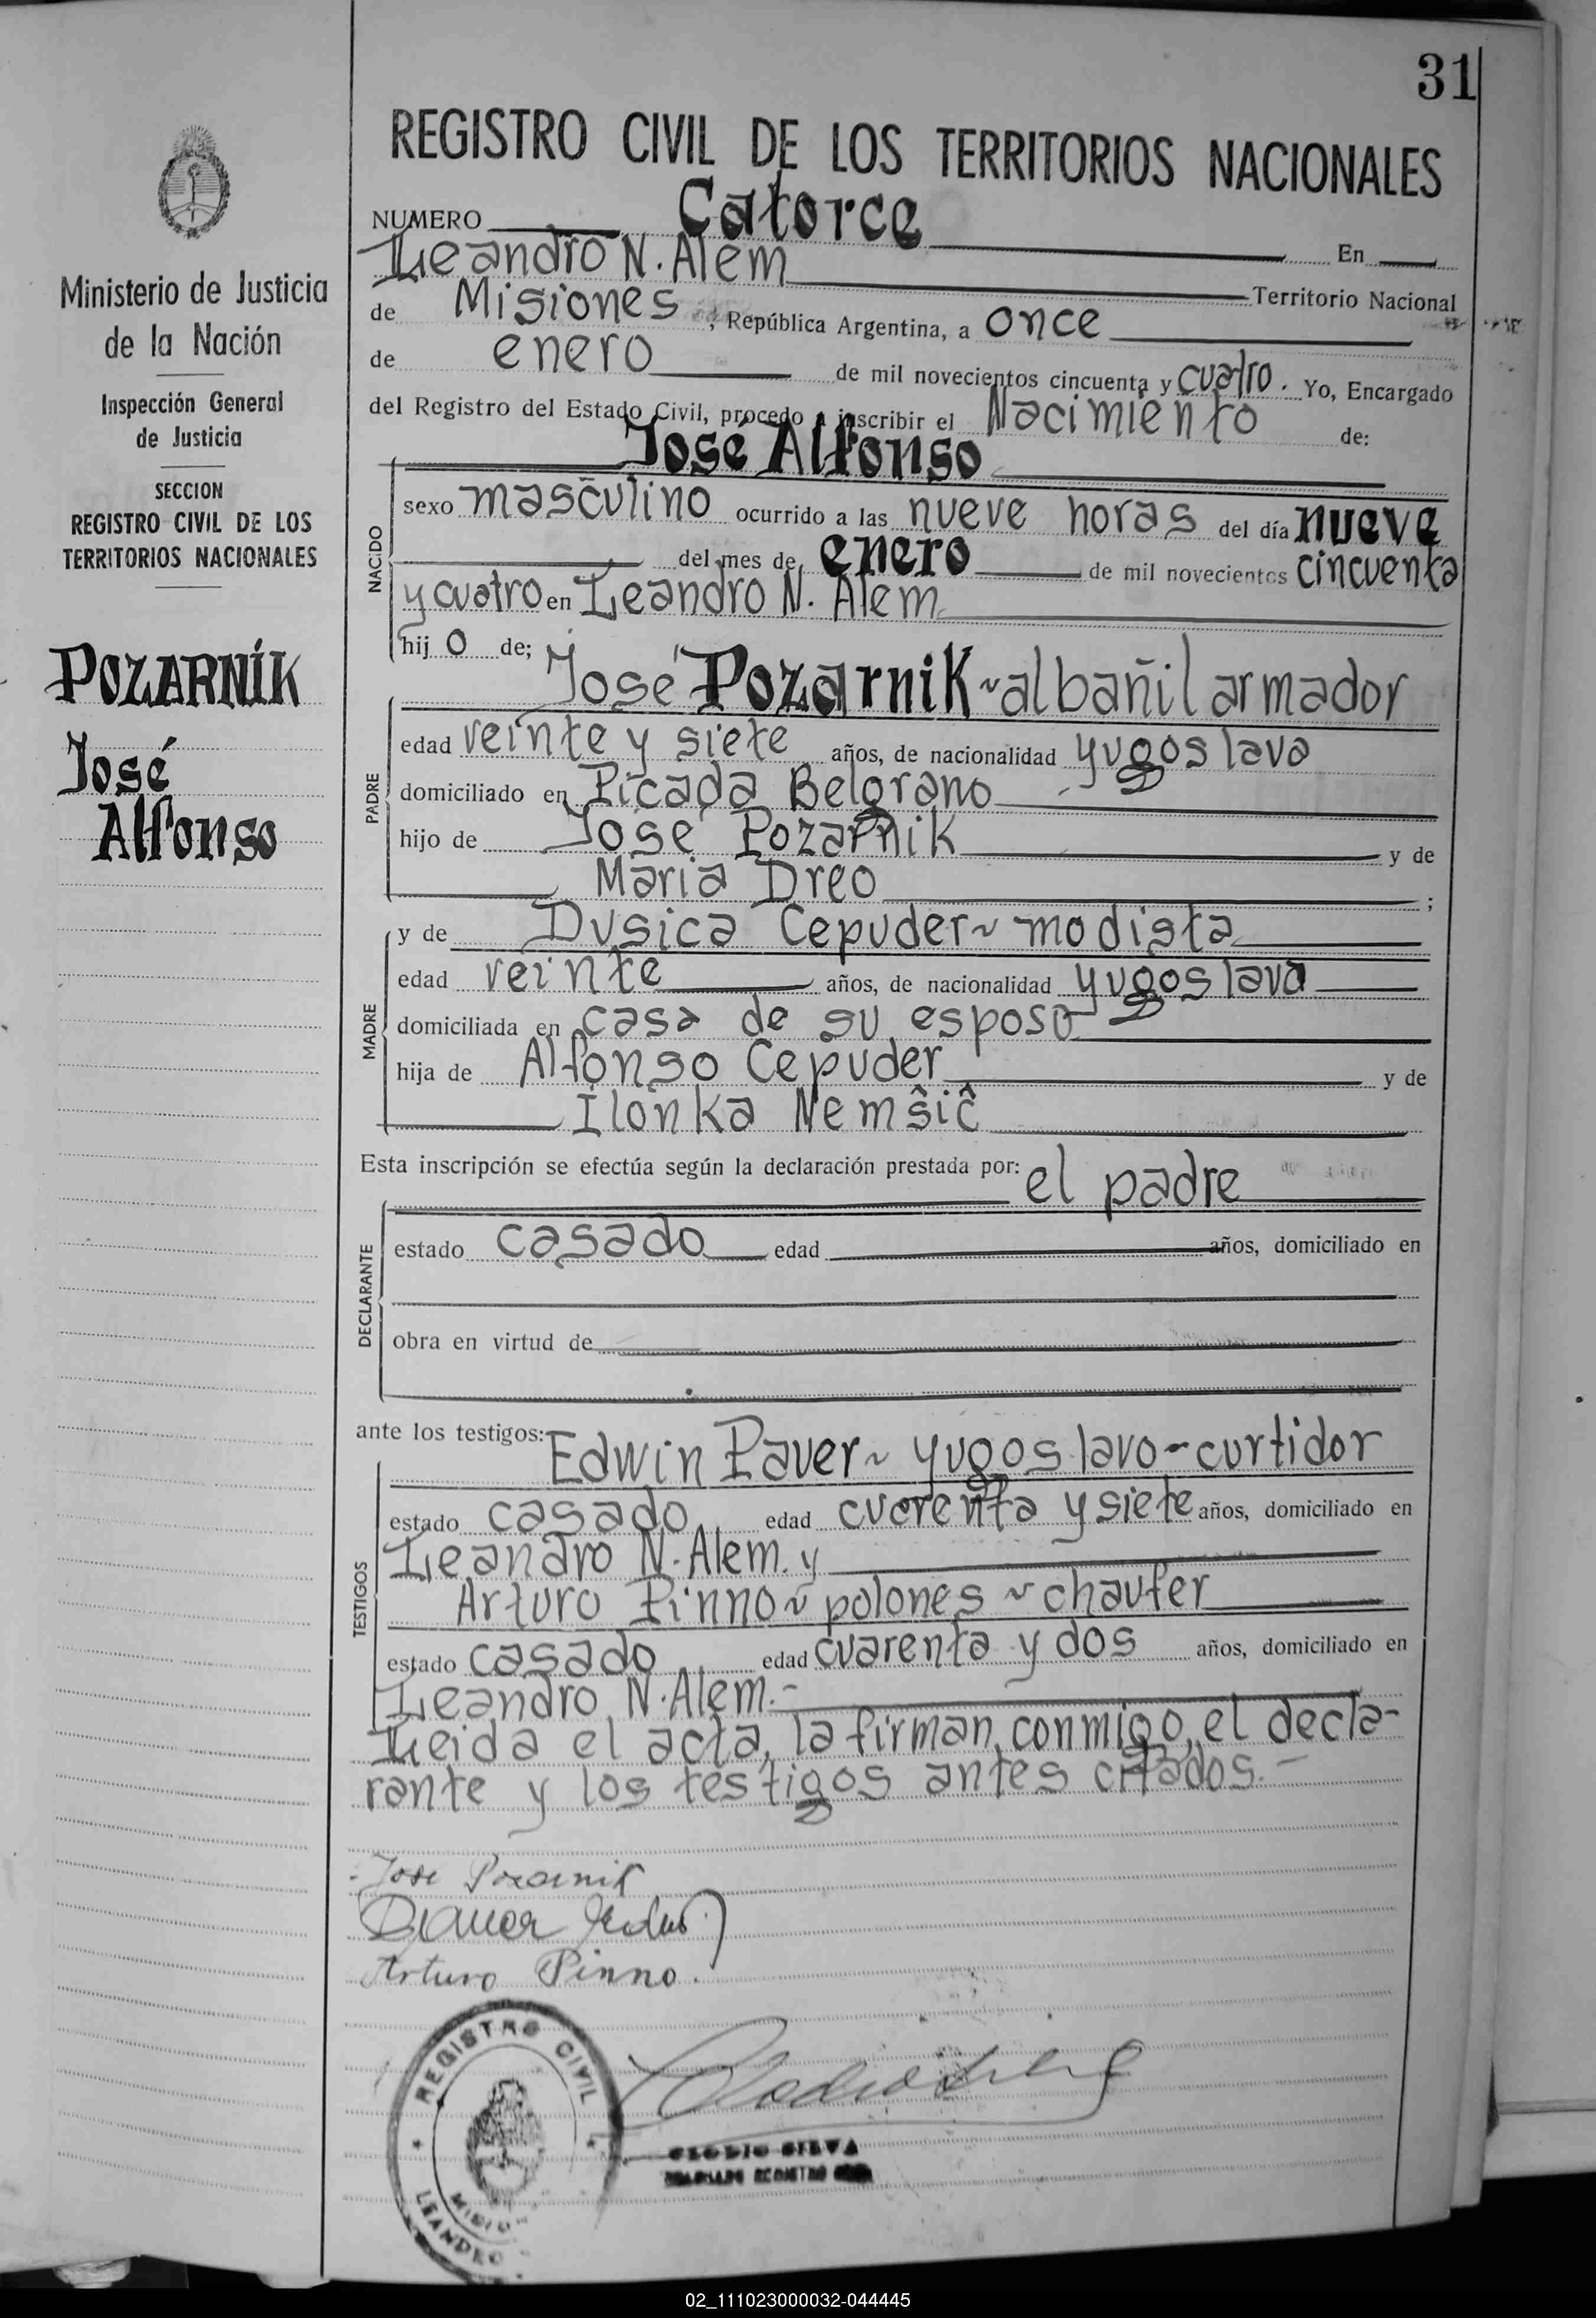 31
REGISTRO CIVIL DE LOS TERRITORIOS NACIONALES
Ministerio de Justicia
de la Nación
Inspección General
de Justicia
SECCION
REGISTRO CIVIL DE LOS
TERRITORIOS NACIONALES
POZARNÍK
José
Alfonso
NUMERO Catorce En
Leandro N. Alem Territorio Nacional
de Misiones, República Argentina, a once
de enero de mil novecientos cincuenta y cuatro. Yo, Encargado
del Registro del Estado Civil, procedo a inscribir el Nacimiento de:
José Alfonso
NACIDO
sexo masculino ocurrido a las nueve horas del día nueve
del mes de enero de mil novecientos cincuenta
y cuatro en Leandro N. Alem
hij o de;
José Pozarnik ~ albañil armador
PADRE
edad veinte y siete años, de nacionalidad yugoslava
domiciliado en Picada Belgrano
hijo de José Pozarnik y de
Maria Dreo ;
MADRE
y de Dusica Cepuder ~ modista
edad veinte años, de nacionalidad yugoslava
domiciliada en casa de su esposo
hija de Alfonso Cepuder y de
Ilonka Nemŝiĉ
Esta inscripción se efectúa según la declaración prestada por: el padre
DECLARANTE
estado casado edad años, domiciliado en
obra en virtud de
ante los testigos: Edwin Paver ~ yugoslavo - curtidor
TESTIGOS
estado casado edad cuerenta y siete años, domiciliado en
Leandro N. Alem. y
Arturo Pinno ~ polones ~ chaufer
estado casado edad cuarenta y dos años, domiciliado en
Leandro N. Alem.-
Leida el acta, la firman, conmigo, el decla-
rante y los testigos antes citados.-
Jose Pozarnik
Arturo Pinno.
REGISTRO CIVIL
LEANDRO
CLODIO SILVA
02_111023000032-044445